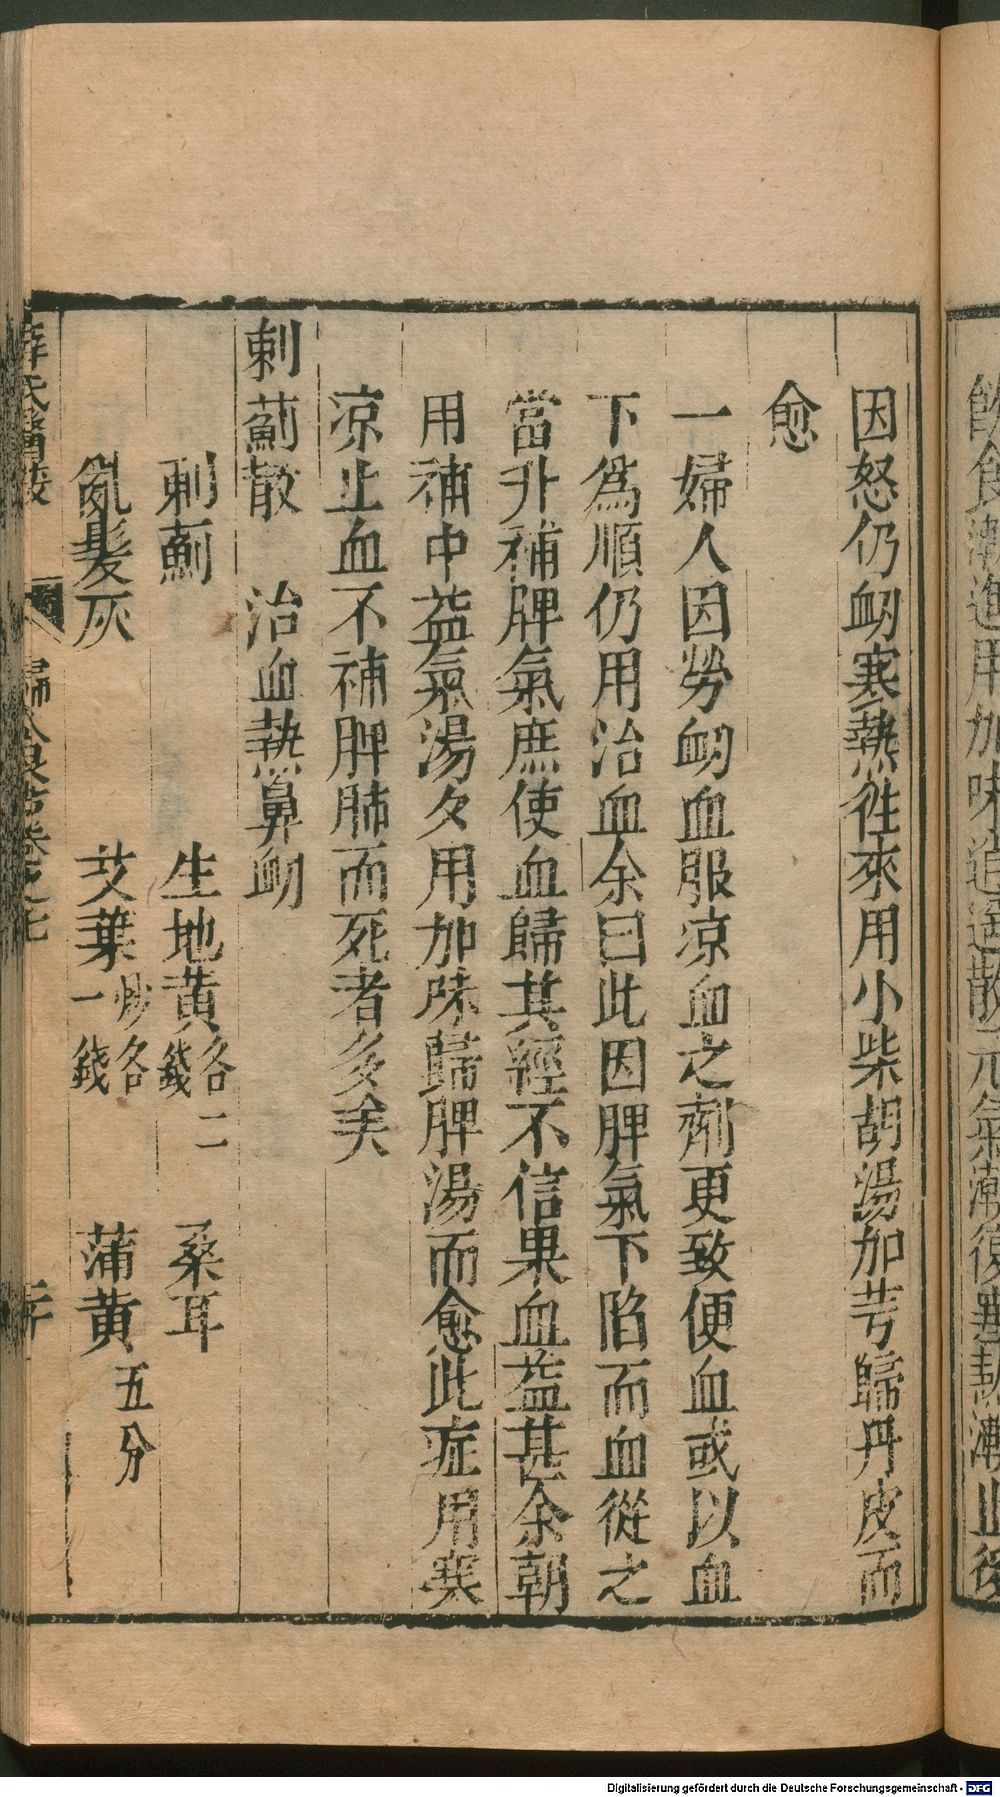 飲食漸進用加味逍遥散元氣漸復寒熱漸止後
因怒仍衂寒熱徃來用小柴胡湯加芎歸丹皮而
愈
一婦人因勞衂血服凉血之劑更致便血或以血
下爲順仍用治血余曰此因脾氣下陷而血從之
當升補脾氣庶使血歸其經不信果血益甚余朝
用補中益氣湯夕用加味歸脾湯而愈此症用寒
凉止血不補脾肺而死者多矣
刺薊散　治血熱鼻衂
刺薊　生地黄各二錢　桑耳
亂髮灰　艾葉炒各一錢　蒲黄五分
薛氏醫按　婦人良方卷之七
Digitalisierung gefördert durch die Deutsche Forschungsgemeinschaft - DFG